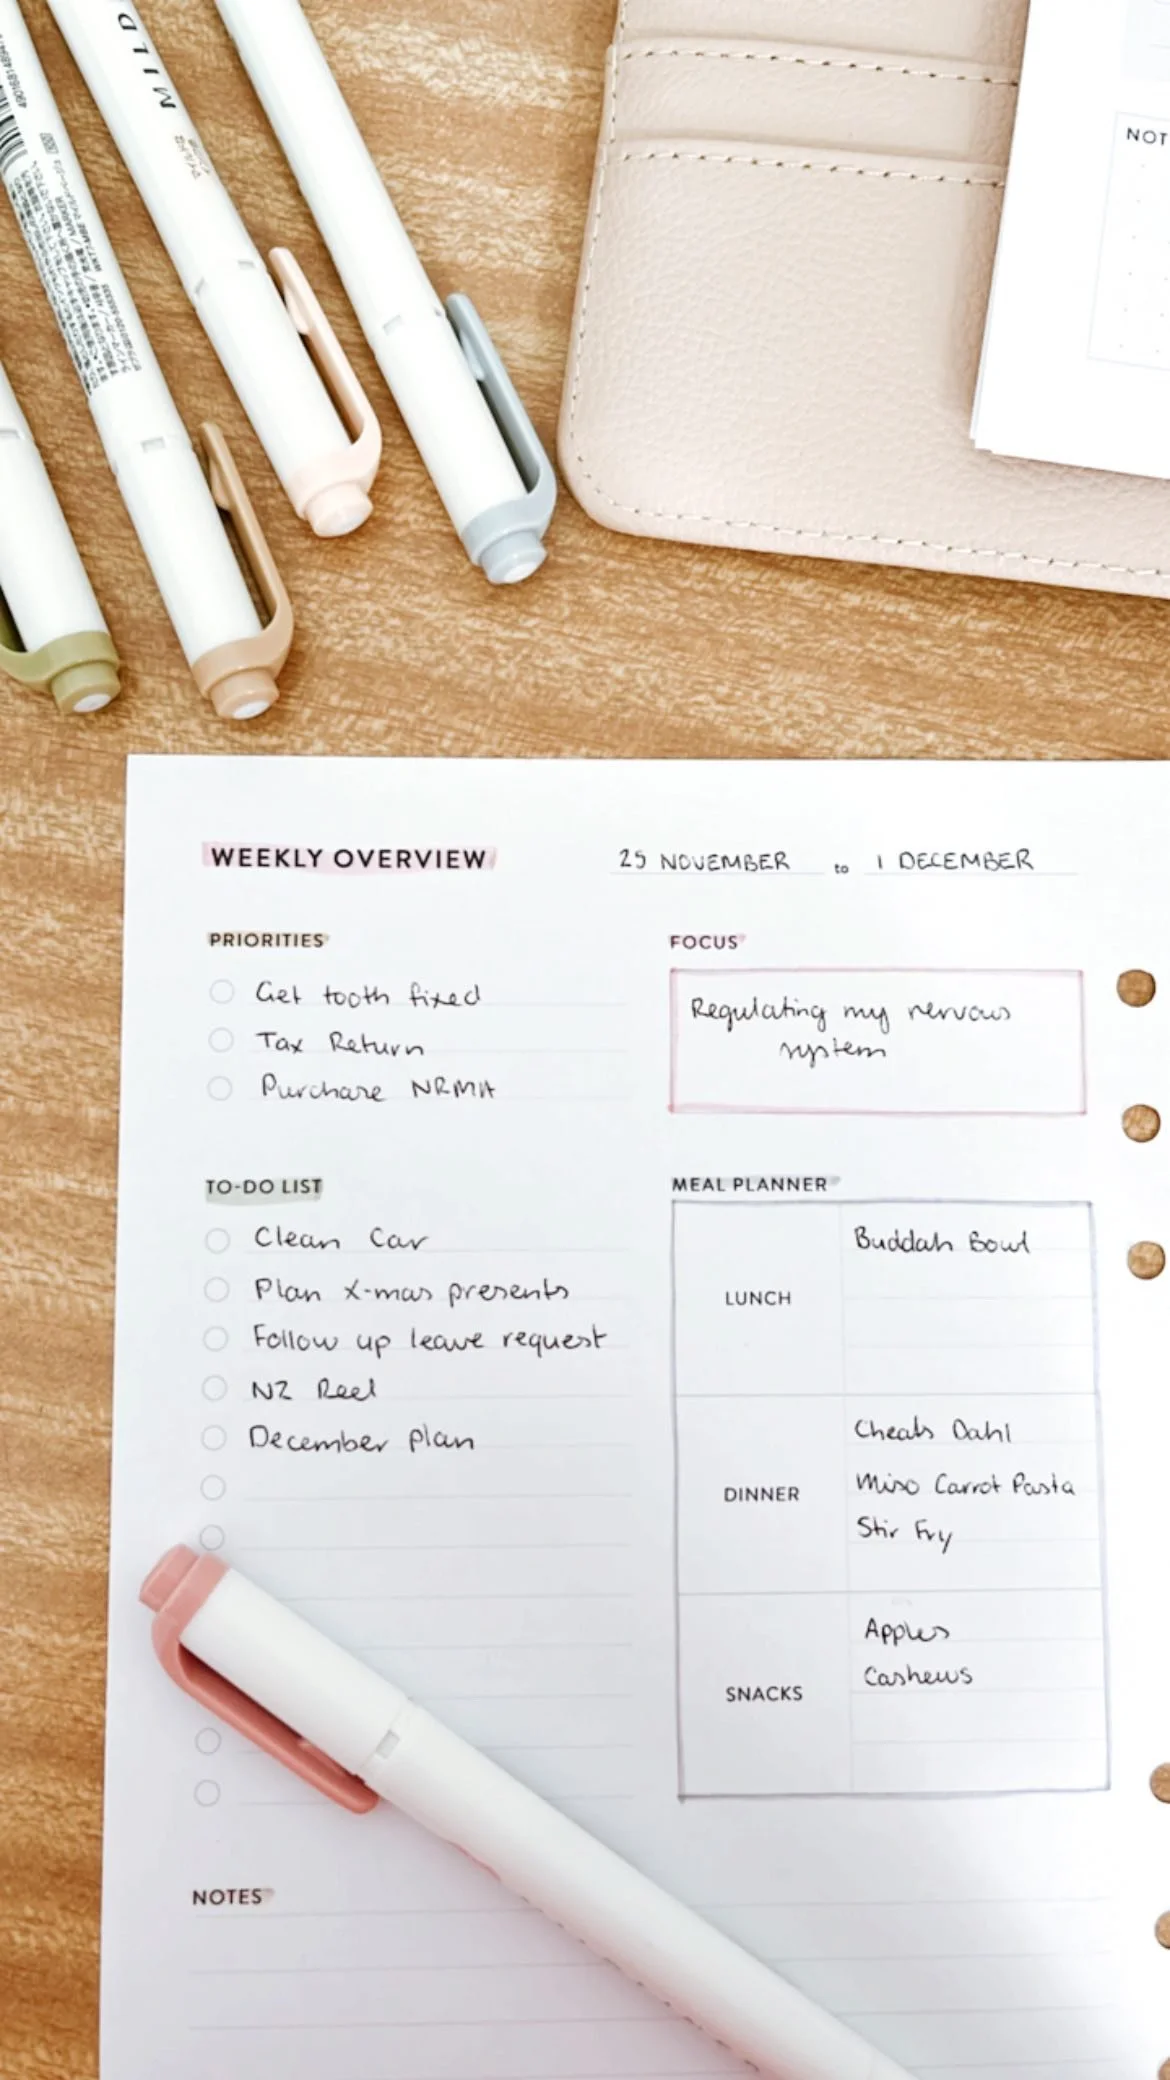 MILD
NOT
WEEKLY OVERVIEW
25 NOVEMBER to 1 DECEMBER
PRIORITIES
Get tooth fixed
Tax Return
Purchase NRMA
FOCUS
Regulating my nervous
system
TO-DO LIST
Clean Car
Plan X-mas presents
Follow up leave request
NZ Reel
December plan
MEAL PLANNER
LUNCH
Buddah Bowl
DINNER
Cheats Dahl
Miso Carrot Pasta
Stir Fry
SNACKS
Apples
Cashews
NOTES